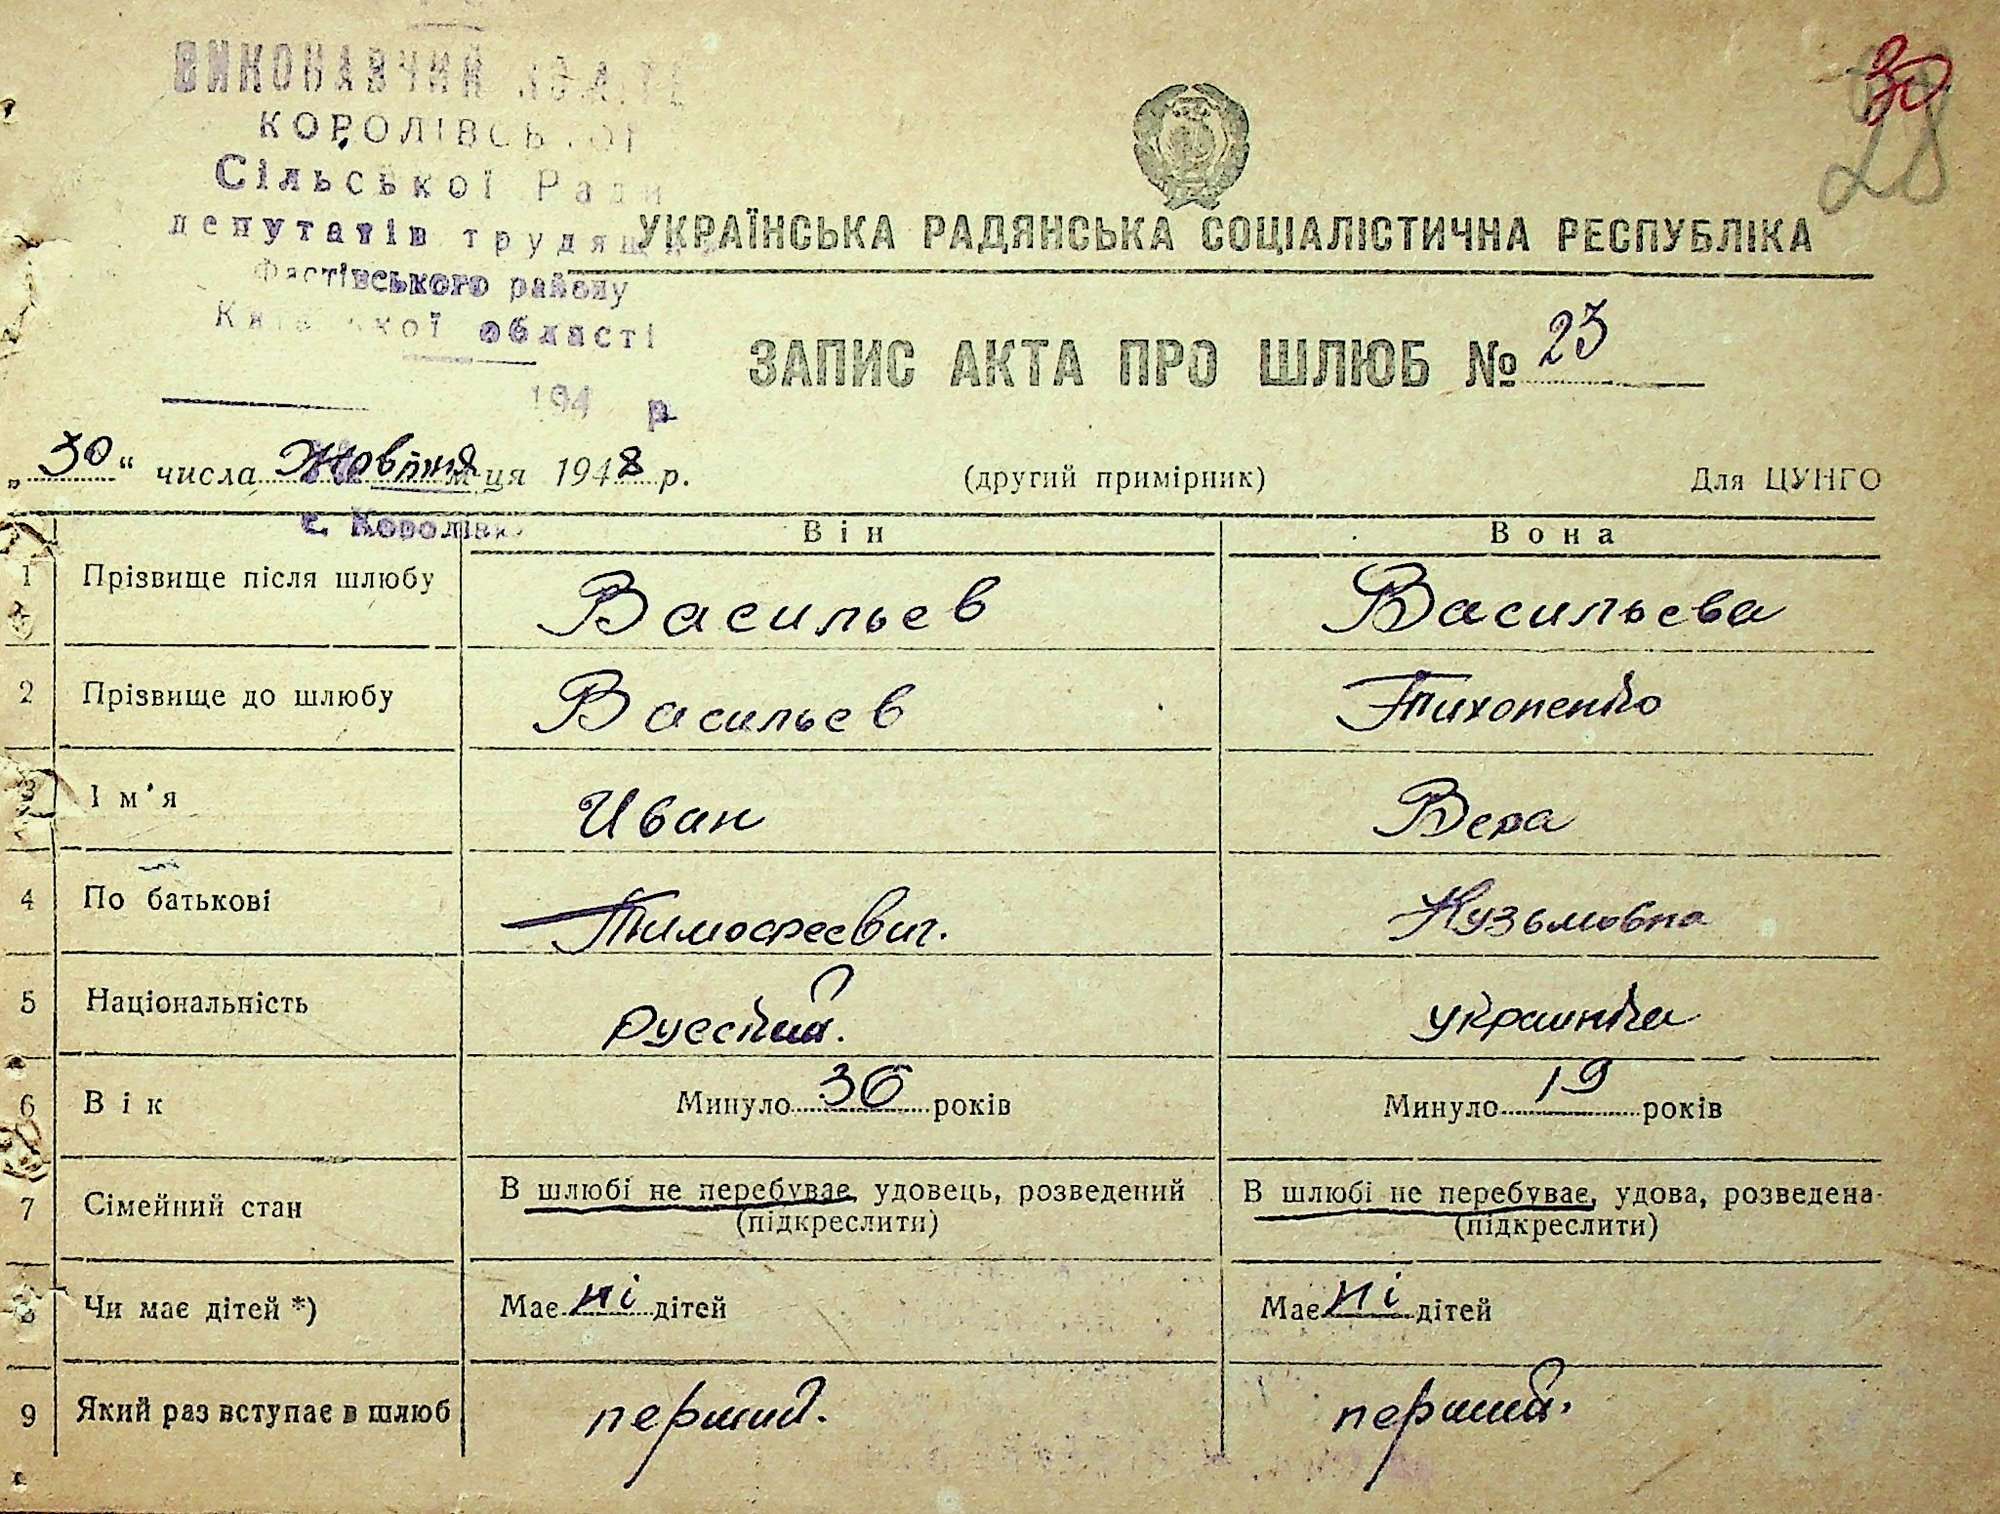 ВИКОНАВЧИЙ
КОРОЛІВСЬКОЇ
Сільської Ради
депутатів трудящих
Фастівського району
Київської області
194 р.
с. Королівка
30
28
УКРАЇНСЬКА РАДЯНСЬКА СОЦІАЛІСТИЧНА РЕСПУБЛІКА
ЗАПИС АКТА ПРО ШЛЮБ № 23
„30“ числа Жовтня м-ця 1948 р. (другий примірник) Для ЦУНГО
Він Вона
1 Прізвище після шлюбу Васильев Васильева
2 Прізвище до шлюбу Васильев Тихоненко
3 Ім'я Иван Вера
4 По батькові Тимофеевич. Кузьмовна
5 Національність Русский. украинка
6 Вік Минуло 36 років Минуло 19 років
7 Сімейний стан В шлюбі не перебуває, удовець, розведений В шлюбі не перебуває, удова, розведена
(підкреслити) (підкреслити)
8 Чи має дітей *) Має ні дітей Має ні дітей
9 Який раз вступає в шлюб перший. перший.